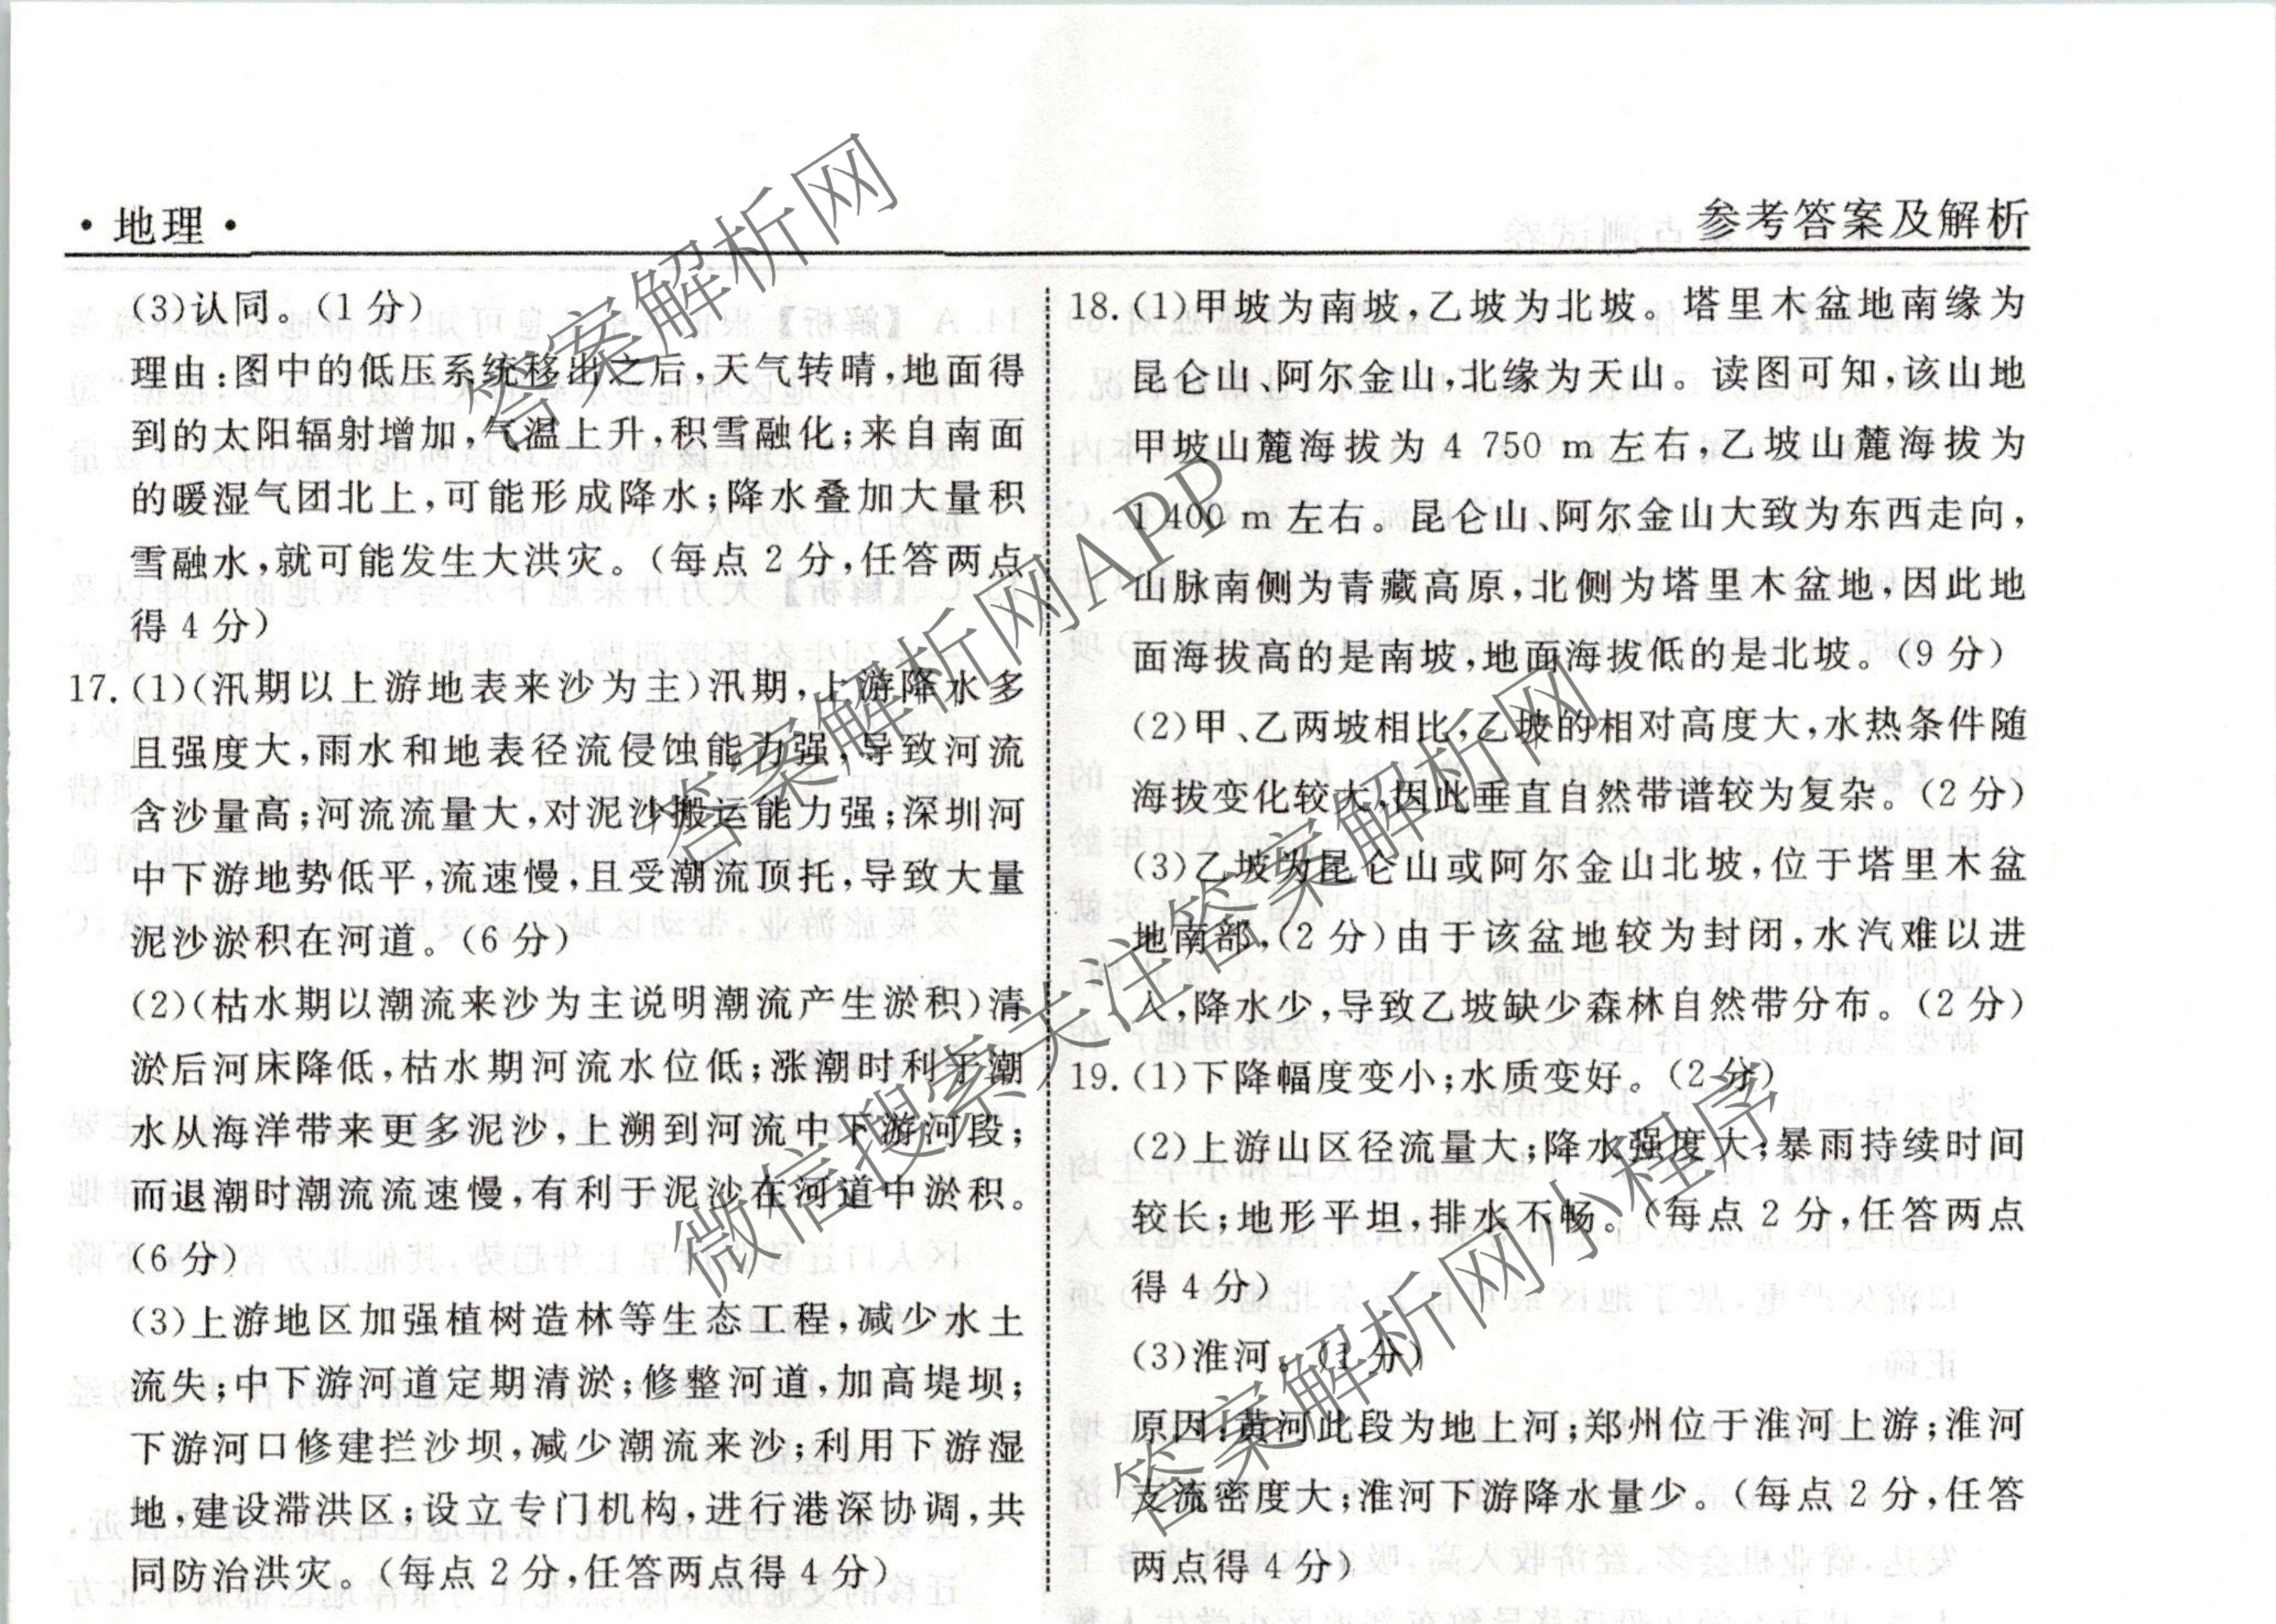 ·地理·
参考答案及解析
(3)认同。(1分)
理由:图中的低压系统移出之后,天气转晴,地面得
到的太阳辐射增加,气温上升,积雪融化;来自南面
的暖湿气团北上,可能形成降水;降水叠加大量积
雪融水,就可能发生大洪灾。(每点2分,任答两点
得4分)
17.(1)(汛期以上游地表来沙为主)汛期,上游降水多
且强度大,雨水和地表径流侵蚀能力强,导致河流
含沙量高;河流流量大,对泥沙搬运能力强;深圳河
中下游地势低平,流速慢,且受潮流顶托,导致大量
泥沙淤积在河道。(6分)
(2)(枯水期以潮流来沙为主说明潮流产生淤积)清
淤后河床降低,枯水期河流水位低;涨潮时利于潮
水从海洋带来更多泥沙,上溯到河流中下游河段;
而退潮时潮流流速慢,有利于泥沙在河道中淤积。
(6分)
(3)上游地区加强植树造林等生态工程,减少水土
流失;中下游河道定期清淤;修整河道,加高堤坝;
下游河口修建拦沙坝,减少潮流来沙;利用下游湿
地,建设滞洪区;设立专门机构,进行港深协调,共
同防治洪灾。(每点2分,任答两点得4分)
18.(1)甲坡为南坡,乙坡为北坡。塔里木盆地南缘为
昆仑山、阿尔金山,北缘为天山。读图可知,该山地
甲坡山麓海拔为4 750 m左右,乙坡山麓海拔为
1 400 m左右。昆仑山、阿尔金山大致为东西走向,
山脉南侧为青藏高原,北侧为塔里木盆地,因此地
面海拔高的是南坡,地面海拔低的是北坡。(9分)
(2)甲、乙两坡相比,乙坡的相对高度大,水热条件随
海拔变化较大,因此垂直自然带谱较为复杂。(2分)
(3)乙坡为昆仑山或阿尔金山北坡,位于塔里木盆
地南部,(2分)由于该盆地较为封闭,水汽难以进
入,降水少,导致乙坡缺少森林自然带分布。(2分)
19.(1)下降幅度变小;水质变好。(2分)
(2)上游山区径流量大;降水强度大;暴雨持续时间
较长;地形平坦,排水不畅。(每点2分,任答两点
得4分)
(3)淮河。(1分)
原因:黄河此段为地上河;郑州位于淮河上游;淮河
支流密度大;淮河下游降水量少。(每点2分,任答
两点得4分)
答案解析网
答案解析网APP
微信搜索关注答案解析网
答案解析网小程序